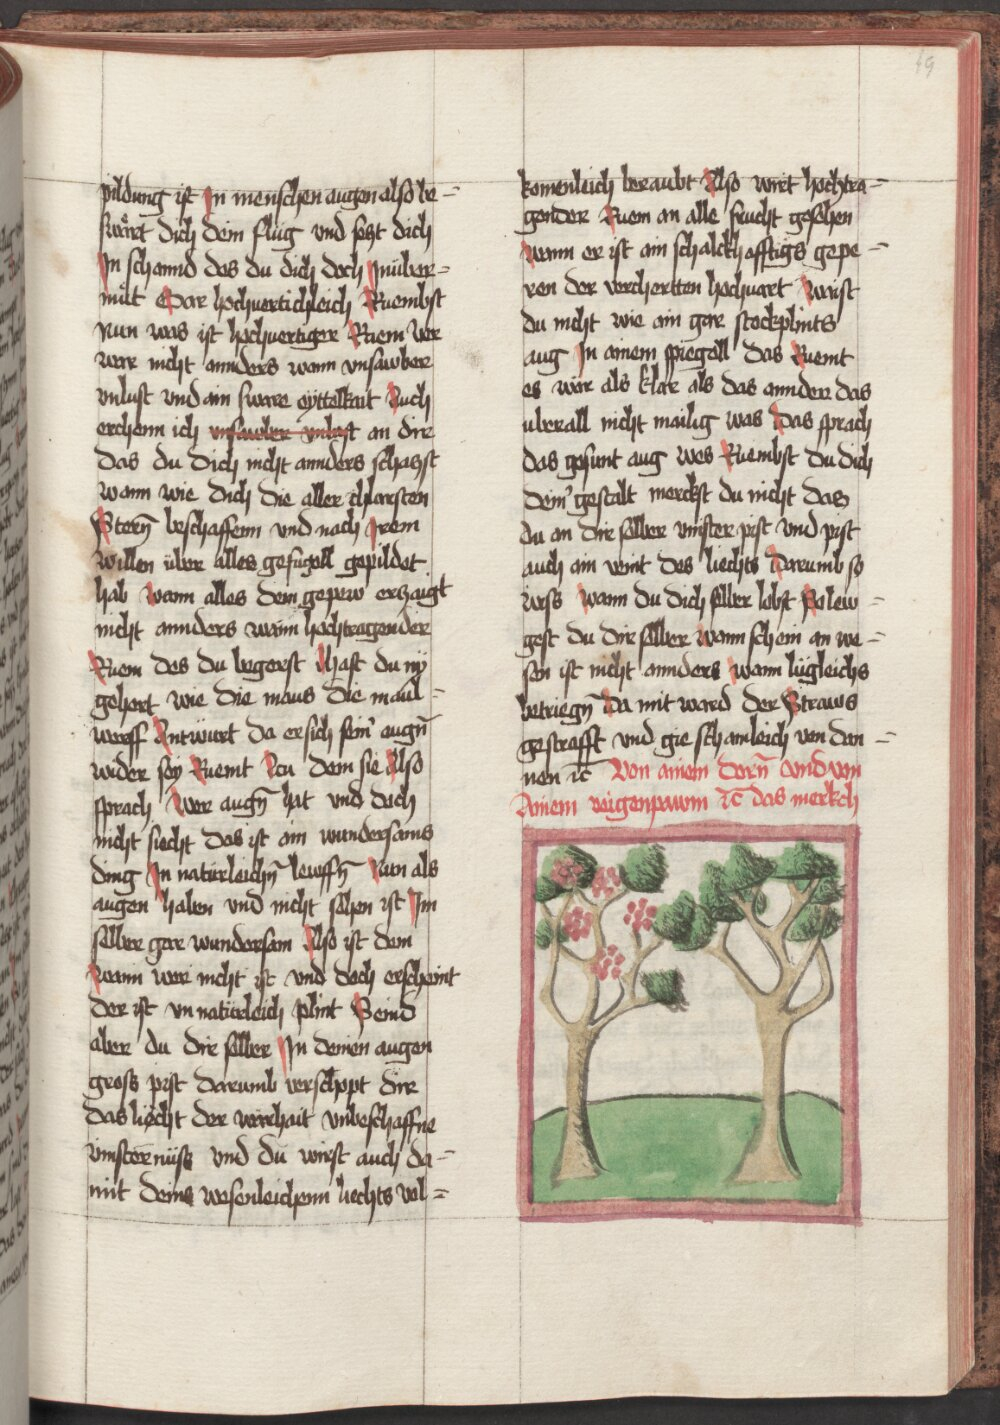 49
pildung ist In menschen augen also be=
swärt dich dein flug vnd setzt dich
In schannd das du dich doch Inüber=
milt Gar hochvertichleich Ruembst
Nun was ist hochvertiger Ruem Wer
ware nicht annders wann vnsawber
vnlust vnd ain sware eyttelkait Auch
erchenn ich vnsawber vnlust an dir
das du dich nicht annders schatzst
wann wie dich die aller chlaristen
Stern beschaffenn vnd nach Irem
willen über alles gefügell gepildet
hab Wann alles dein gepew erzaigt
nicht annders wann hochtragender
Ruem des du begerst hast du ny
gehort wie die maus die maul=
werff Antwurt da er sich seiner augn
wider sey Ruemt Zu dem sie Also
sprach Wer augn hat vnd doch
nicht siecht das ist ain wundersams
ding In naturleichn lewffn Nun als
augen haben vnd nicht sehen ist Im
selber gar wundersam Also ist dem
Wann wer nicht ist vnd doch erscheint
der ist vnnaturleich plint Seind
aber du dir selber In deinen augen
gross pist darumb verschopt dir
das liecht der warhait vnbeschaffne
vinsternüss vnd du wirst auch da=
mit deins wesenleichenn liechts vol=
komenleich beraubt Also wirt hochtra=
gender Ruem an alle frucht gesehen
Wann er ist ain schalckhafftigs gepe=
ren der vercherten hochuart Waist
du nicht wie ain gar stockplints
aug In ainem spiegell das Ruemt
es wär als klar als das annder das
uberall nicht mailig was Das sprach
das gesunt aug Wes Ruembst du dich
deiner gestalt merckst du nicht das
du an dir selber vinster pist vnd pist
auch ain veint des liechts Darumb so
wiss Wann du dich selber lobst So lew=
gest du dir selber Wann schein an we=
sen ist nicht annders wann lügleichs
betriegn Da mit ward der Strawss
gestrafft vnd gie schamleich von dan=
nen etc Von ainem dorn vnd von
Ainem veigenpawm etc das merkch